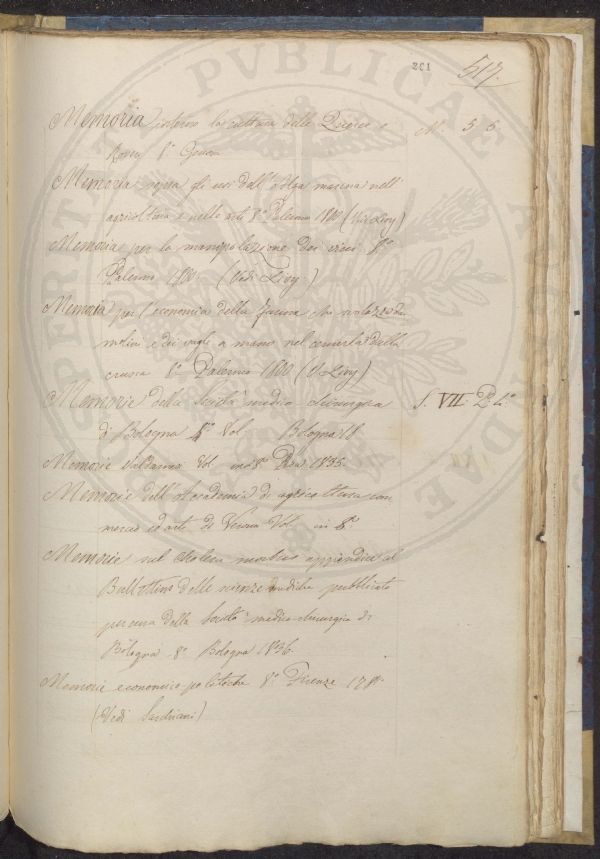 261 517.
Memoria intorno la cultura delle Querce e M. 5 6
Roveri 8° Genova
Memoria sopra gli usi dell'Alga marina nell'
agricoltura e nelle arti 8° Palermo 1800 (Vedi Livy)
Memoria per la manipolazione dei vini 8°
Palermo 1800. (Vedi Livy)
Memoria per l'economia della farina
molini e dei vagli a mano nel cernerla dalla
crusca 8° Palermo 1800 (V. Livy)
Memorie della Società medico chirurgica S. VII. P. 4°
di Bologna 4° Vol Bologna 18
Memorie Valdarnesi Vol in 8° Pisa 1835.
Memorie dell'Accademia di agricoltura com
mercio ed arti di Verona Vol. in 8°.
Memorie sul Cholera morbus appendice al
Bullettino delle scienze mediche pubblicato
per cura della Società medico chirurgica di
Bologna 8° Bologna 1836.
Memorie economico politiche 8° Firenze
(Vedi Sardicani)
PVBLICAE